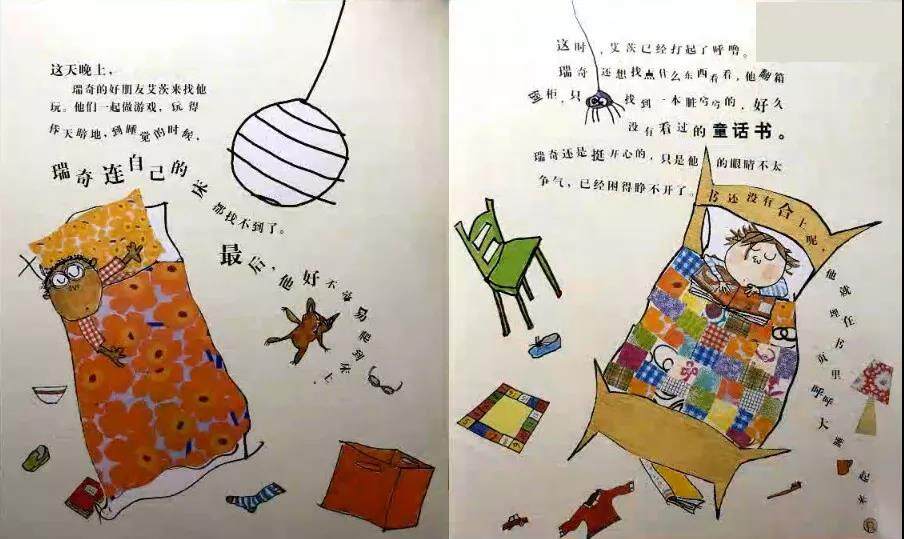 这天晚上，
瑞奇的好朋友艾茨来找他
玩。他们一起做游戏，玩得
昏天暗地，到睡觉的时候，
瑞奇连自己的床
都找不到了。
最后，他好不容易爬到床上。
这时，艾茨已经打起了呼噜。
瑞奇还想找点什么东西看看，他翻箱
倒柜，只找到一本脏兮兮的，好久
没有看过的童话书。
瑞奇还是挺开心的，只是他的眼睛不太
争气，已经困得睁不开了。书还没有合上呢，
他就埋在书页里呼呼大睡起来